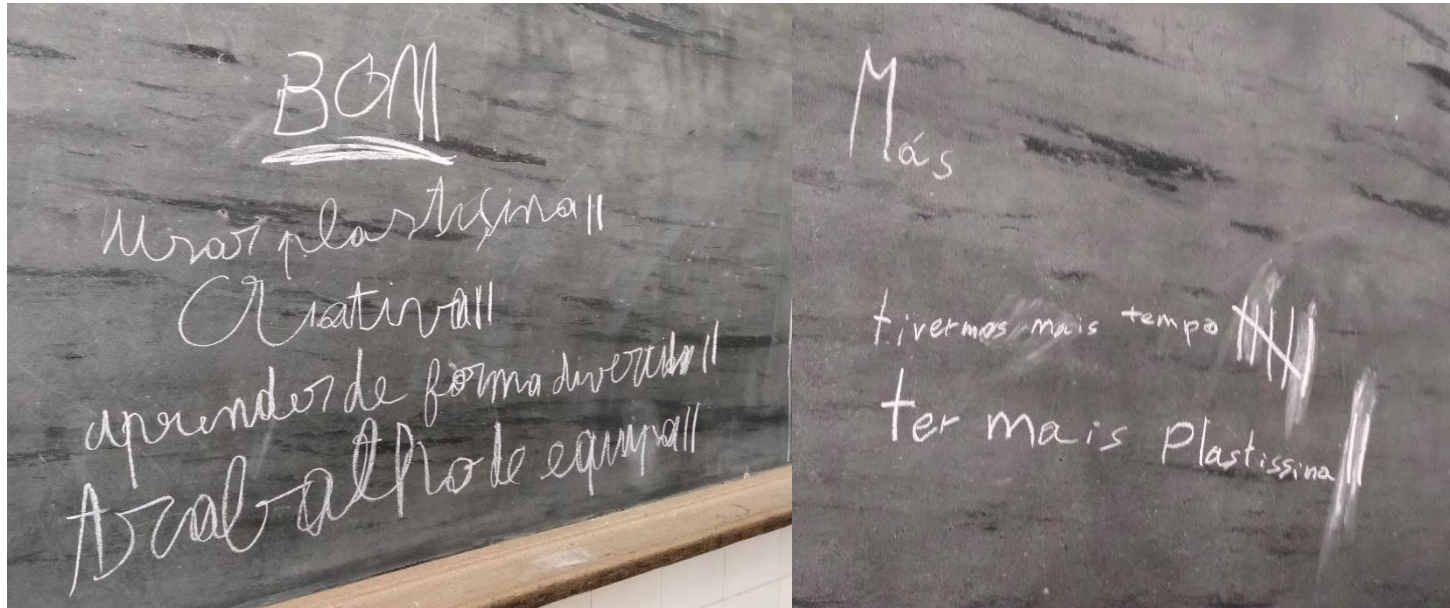 BOM
Usar plastiçina ||
Criativa ||
aprender de forma divertida ||
Trabalho de equipa ||
Más
tivermos mais tempo ||||
ter mais Plastissina ||